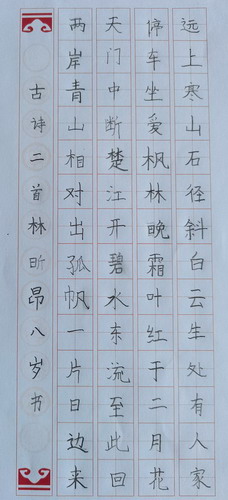 远上寒山石径斜白云生处有人家
停车坐爱枫林晚霜叶红于二月花
天门中断楚江开碧水东流至此回
两岸青山相对出孤帆一片日边来
古诗二首林昕昂八岁书